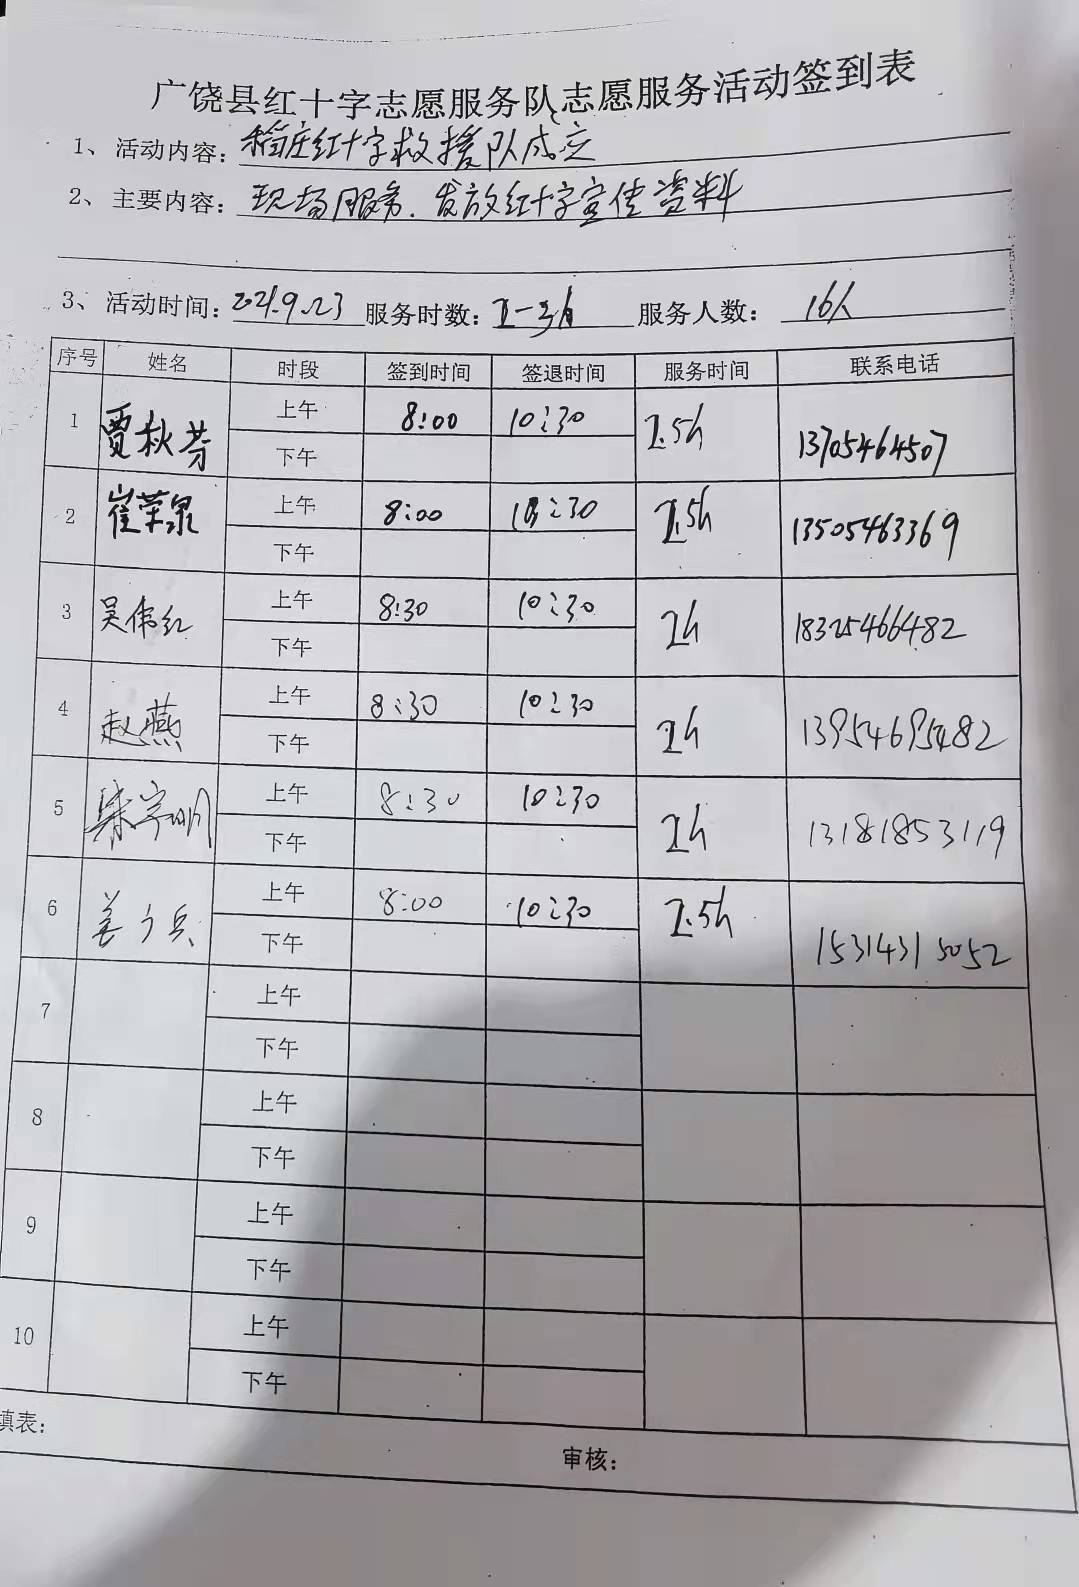 广饶县红十字志愿服务队志愿服务活动签到表
1、活动内容：稻庄红十字救援队成立
2、主要内容：现场服务.发放红十字宣传资料
3、活动时间：2021.9.23 服务时数： 服务人数：16人
序号 姓名 时段 签到时间 签退时间 服务时间 联系电话
1 贾秋芬 上午 8:00 10:30 2.5h 13705464507
下午
2 崔荣泉 上午 8:00 10:30 2.5h 13505463369
下午
3 吴伟红 上午 8:30 10:30 2h 18325466482
下午
4 赵燕 上午 8:30 10:30 2h 13954695482
下午
5 上午 8:30 10:30 2h 13181853119
下午
6 上午 8:00 10:30 2.5h 15314315052
下午
7 上午
下午
8 上午
下午
9 上午
下午
10 上午
下午
填表：
审核：